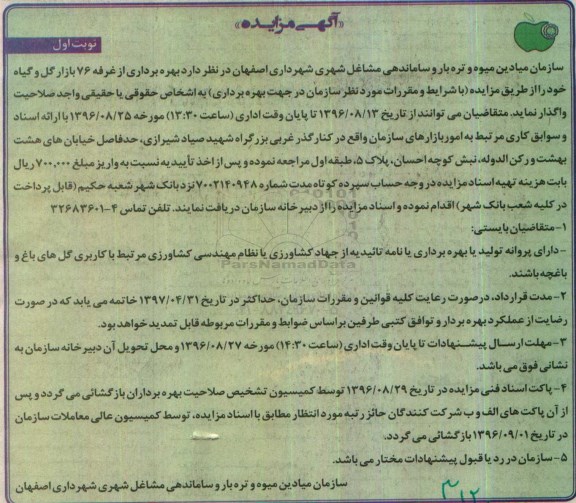 «آگهی مزایده»
نوبت اول
سازمان میادین میوه و تره بار و ساماندهی مشاغل شهری شهرداری اصفهان در نظر دارد بهره برداری از غرفه ۷۶ بازار گل و گیاه
خود را از طریق مزایده (با شرایط و مقررات مورد نظر سازمان در جهت بهره برداری) به اشخاص حقوقی یا حقیقی واجد صلاحیت
واگذار نماید. متقاضیان می توانند از تاریخ ۱۳۹۶/۰۸/۱۳ تا پایان وقت اداری (ساعت ۱۳:۳۰) مورخه ۱۳۹۶/۰۸/۲۵ با ارائه اسناد
و سوابق کاری مرتبط به امور بازارهای سازمان واقع در کنار گذر غربی بزرگراه شهید صیاد شیرازی، حدفاصل خیابان های هشت
بهشت و رکن الدوله، نبش کوچه احسان، پلاک ۵، طبقه اول مراجعه نموده و پس از اخذ تأییدیه نسبت به واریز مبلغ ۷۰۰.۰۰۰ ریال
بابت هزینه تهیه اسناد مزایده در وجه حساب سپرده کوتاه مدت شماره ۷۰۰۲۱۴۰۹۴۸ نزد بانک شهر شعبه حکیم (قابل پرداخت
در کلیه شعب بانک شهر) اقدام نموده و اسناد مزایده را از دبیرخانه سازمان دریافت نمایند. تلفن تماس ۴-۳۲۶۸۳۶۰۱
۱- متقاضیان بایستی:
- دارای پروانه تولید یا بهره برداری یا نامه تائیدیه از جهاد کشاورزی یا نظام مهندسی کشاورزی مرتبط با کاربری گل های باغ و
باغچه باشند.
ParsNamadData
۲- مدت قرارداد، درصورت رعایت کلیه قوانین و مقررات سازمان، حداکثر در تاریخ ۱۳۹۷/۰۴/۳۱ خاتمه می یابد که در صورت
رضایت از عملکرد بهره بردار و توافق کتبی طرفین براساس ضوابط و مقررات مربوطه قابل تمدید خواهد بود.
۳- مهلت ارسال پیشنهادات تا پایان وقت اداری (ساعت ۱۴:۳۰) مورخه ۱۳۹۶/۰۸/۲۷ و محل تحویل آن دبیرخانه سازمان به
نشانی فوق می باشد.
۴- پاکت اسناد فنی مزایده در تاریخ ۱۳۹۶/۰۸/۲۹ توسط کمیسیون تشخیص صلاحیت بهره برداران بازگشائی می گردد و پس
از آن پاکت های الف و ب شرکت کنندگان حائز رتبه مورد انتظار مطابق با اسناد مزایده، توسط کمیسیون عالی معاملات سازمان
در تاریخ ۱۳۹۶/۰۹/۰۱ بازگشائی می گردد.
۵- سازمان در رد یا قبول پیشنهادات مختار می باشد.
سازمان میادین میوه و تره بار و ساماندهی مشاغل شهری شهرداری اصفهان